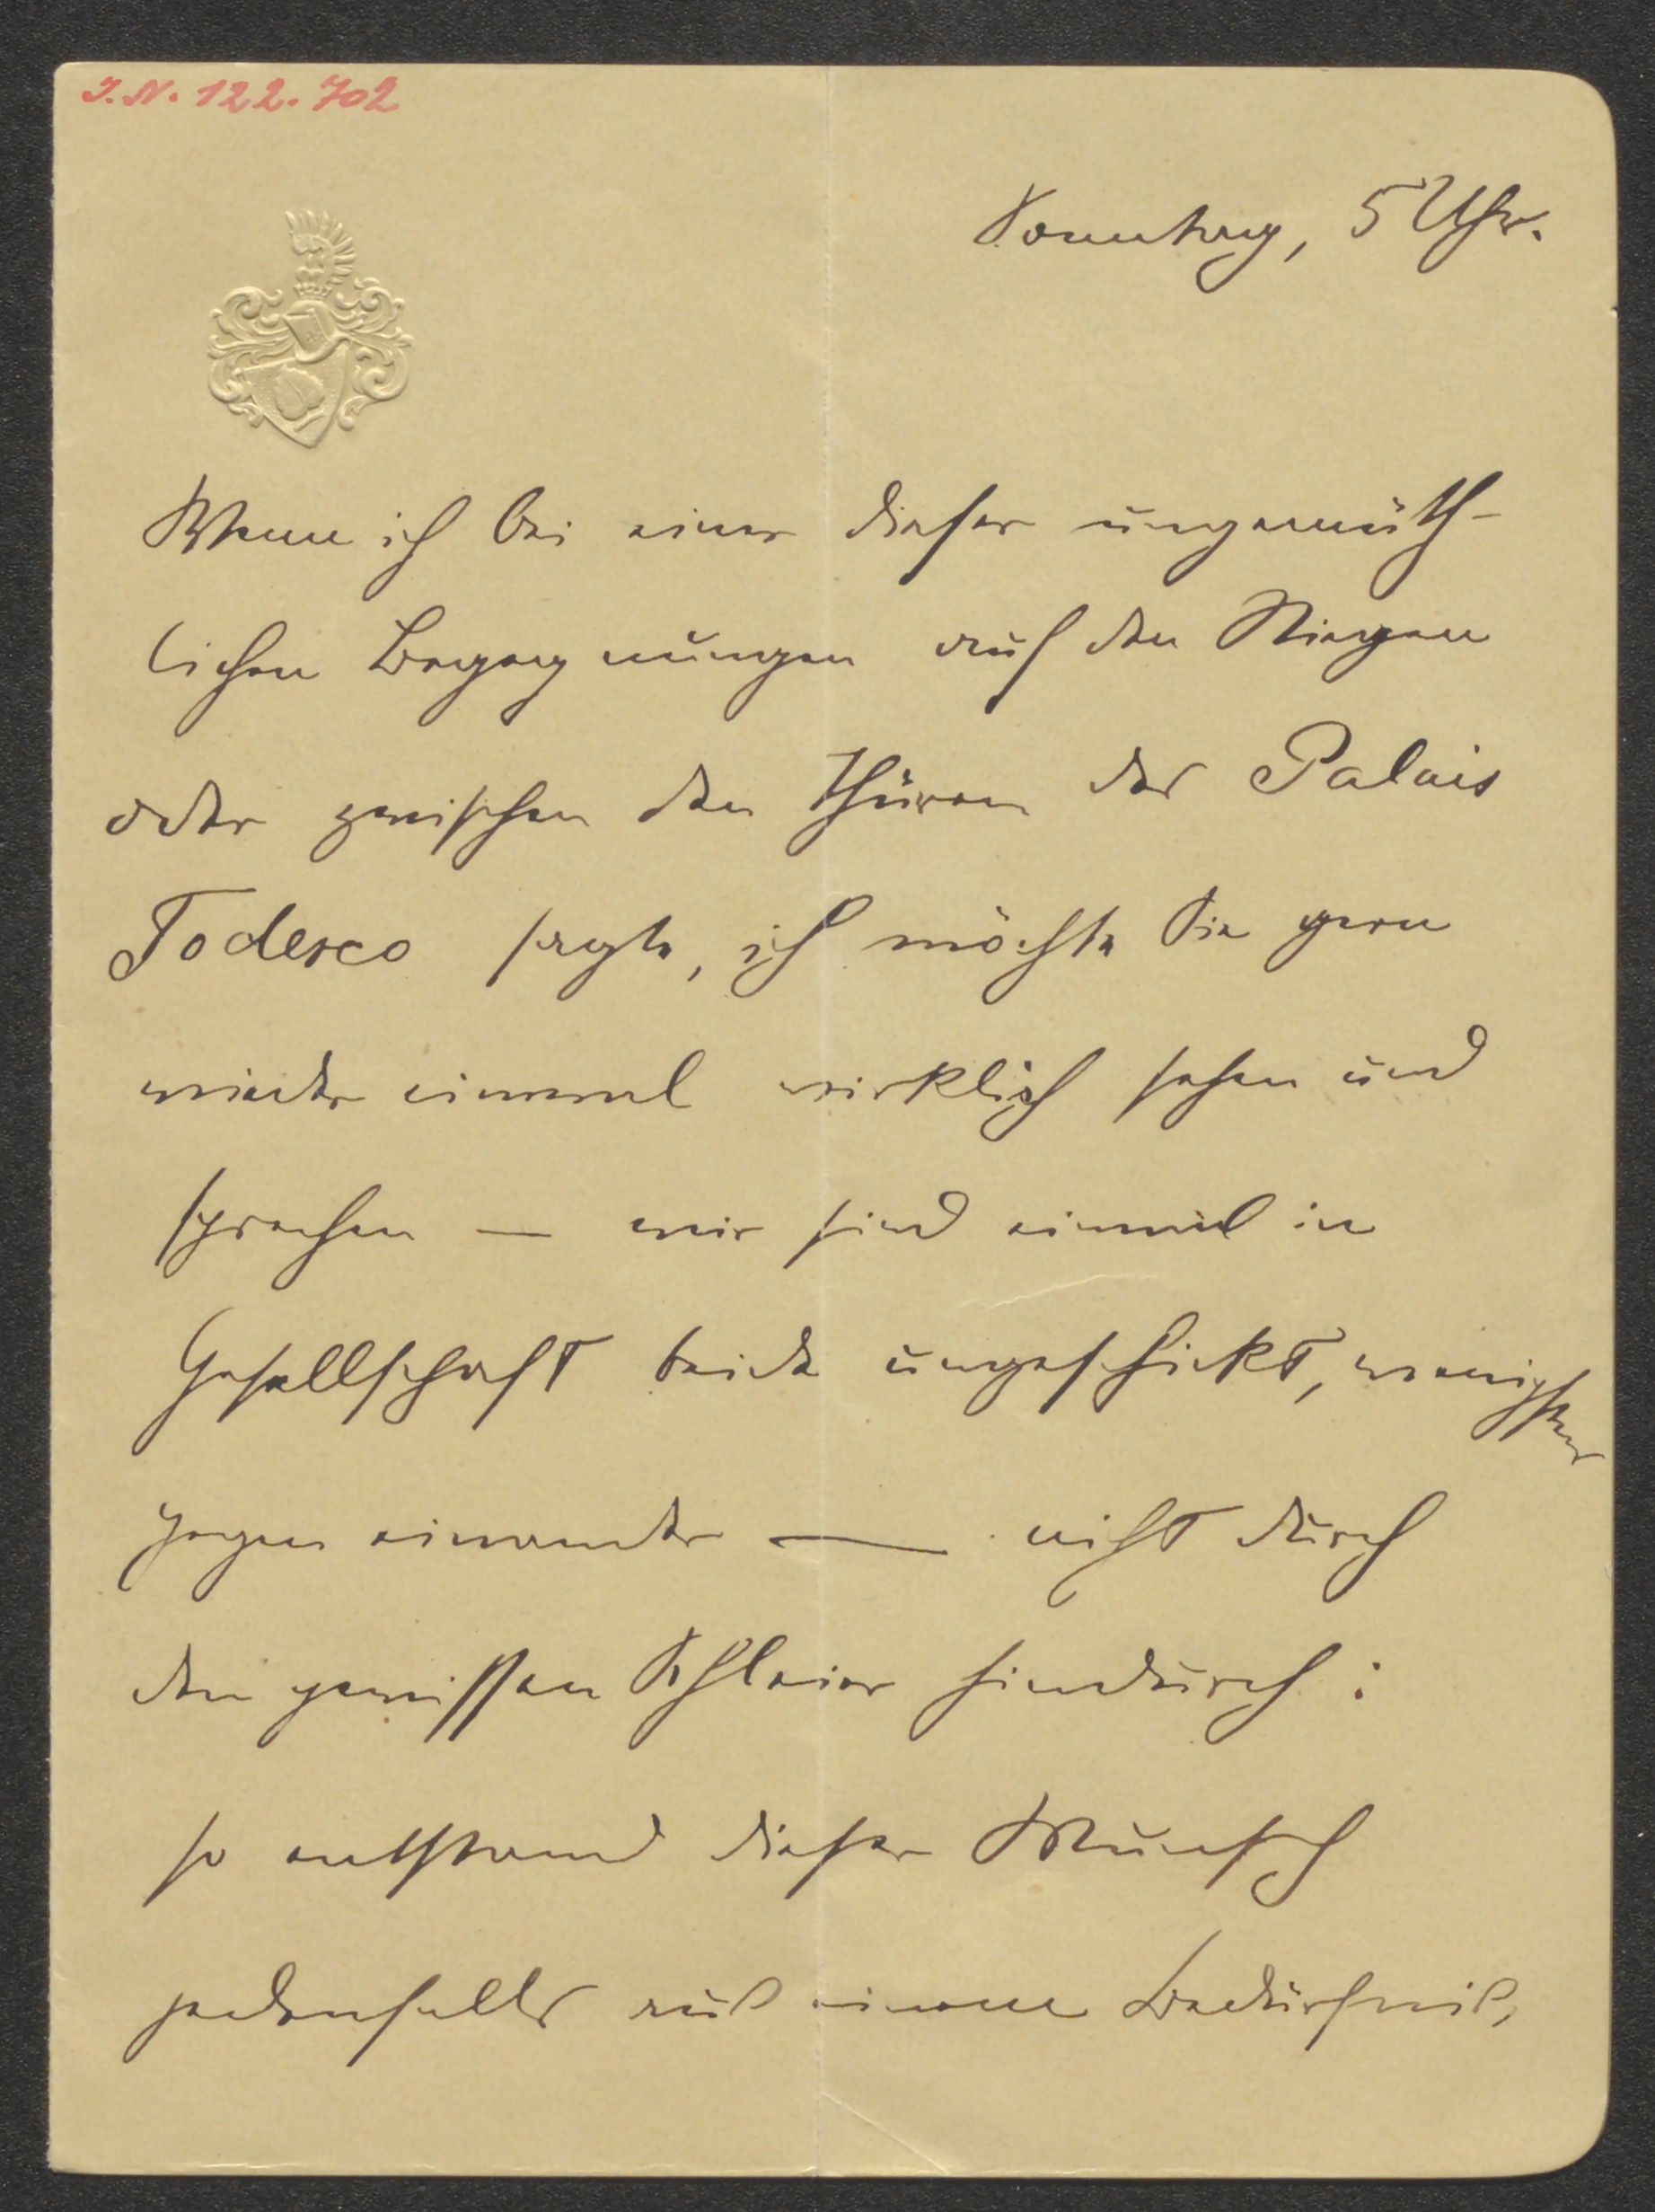 I.N. 122.702
Sonntag, 5 Uhr.
Wenn ich bei einer dieser ungemüth-
lichen Begegnungen auf den Stiegen
oder zwischen den Thüren des Palais
Todesco sagte, ich möchte Sie gern
wieder einmal wirklich sehen und
sprechen — wir sind einmal in
Gesellschaft beide ungeschickt, wenigstens
gegen einander — nicht durch
den gewissen Schleier hindurch:
so entstand dieser Wunsch
jedenfalls aus einem Bedürfniß,